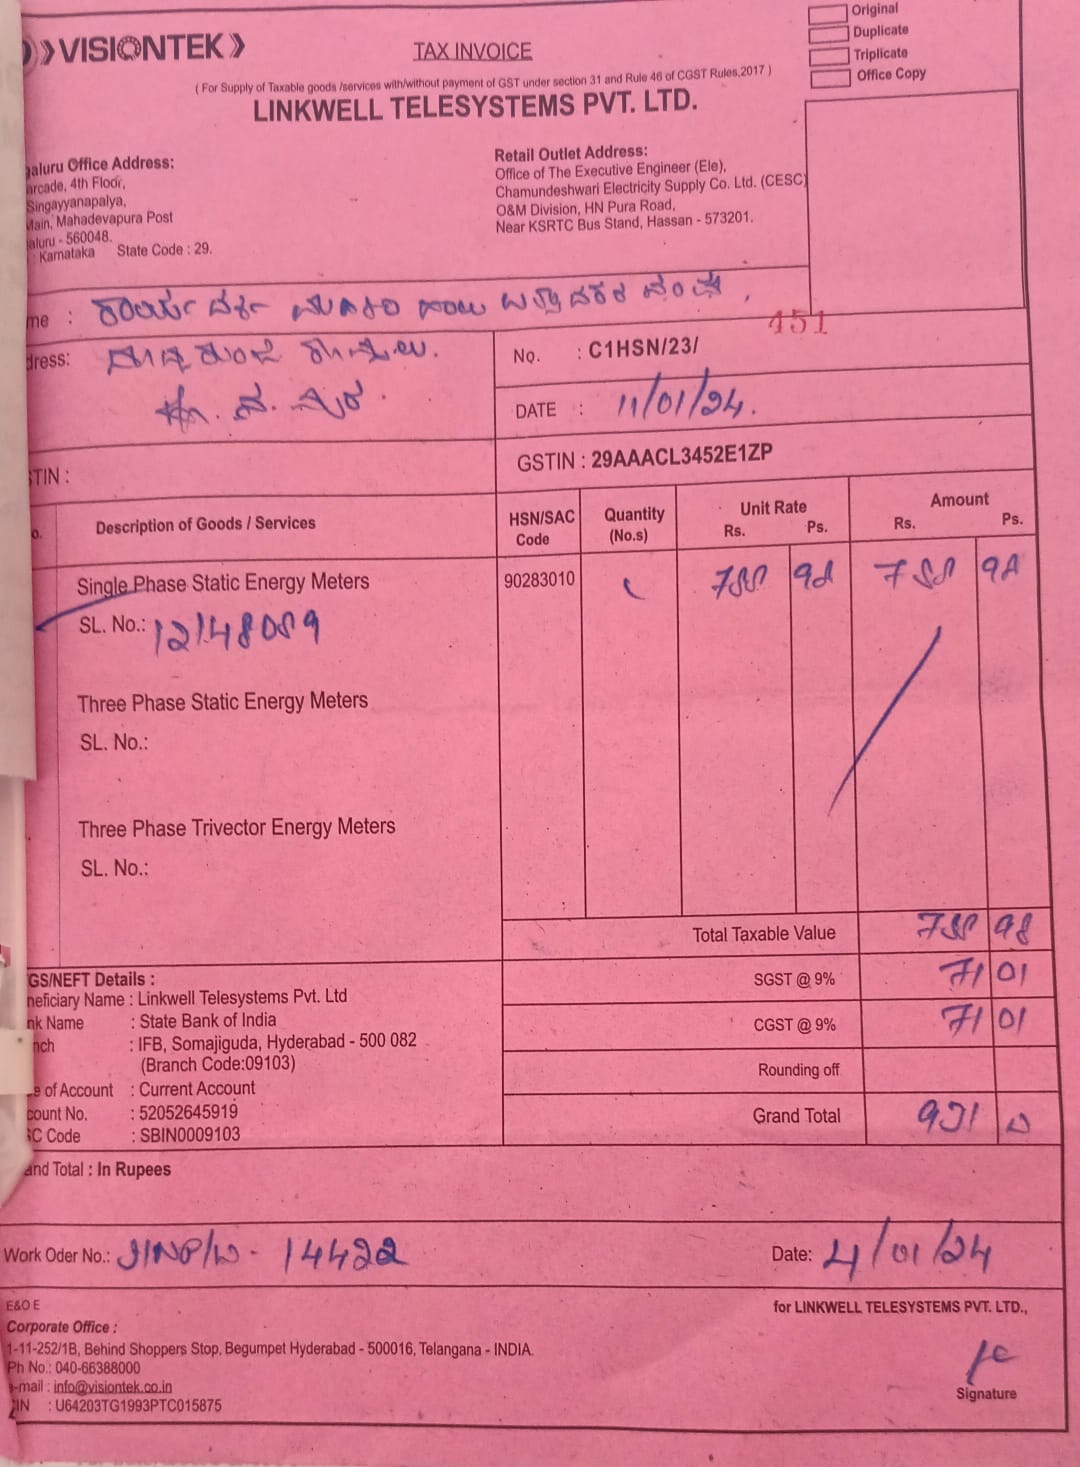 VISIONTEK
TAX INVOICE
Original
Duplicate
Triplicate
Office Copy
( For Supply of Taxable goods /services with/without payment of GST under section 31 and Rule 46 of CGST Rules,2017 )
LINKWELL TELESYSTEMS PVT. LTD.
Office Address:
4th Floor,
Singayyanapalya,
Mahadevapura Post
- 560048.
: Karnataka State Code : 29.
Retail Outlet Address:
Office of The Executive Engineer (Ele),
Chamundeshwari Electricity Supply Co. Ltd. (CESC)
O&M Division, HN Pura Road,
Near KSRTC Bus Stand, Hassan - 573201.
151
No. : C1HSN/23/
DATE : 11/01/24.
GSTIN : 29AAACL3452E1ZP
Description of Goods / Services
HSN/SAC Code
Quantity (No.s)
Unit Rate
Rs. Ps.
Amount
Rs. Ps.
Single Phase Static Energy Meters 90283010
SL. No.: 12148089
Three Phase Static Energy Meters
SL. No.:
Three Phase Trivector Energy Meters
SL. No.:
Total Taxable Value
SGST @ 9% 71 01
CGST @ 9% 71 01
Rounding off
Grand Total
Details :
Name : Linkwell Telesystems Pvt. Ltd
Name : State Bank of India
: IFB, Somajiguda, Hyderabad - 500 082
(Branch Code:09103)
of Account : Current Account
No. : 52052645919
Code : SBIN0009103
Total : In Rupees
Work Oder No.: 14422
Date: 4/01/24
E&O E
Corporate Office :
1-11-252/1B, Behind Shoppers Stop, Begumpet Hyderabad - 500016, Telangana - INDIA.
Ph No.: 040-66388000
: info@visiontek.co.in
: U64203TG1993PTC015875
for LINKWELL TELESYSTEMS PVT. LTD.,
Signature